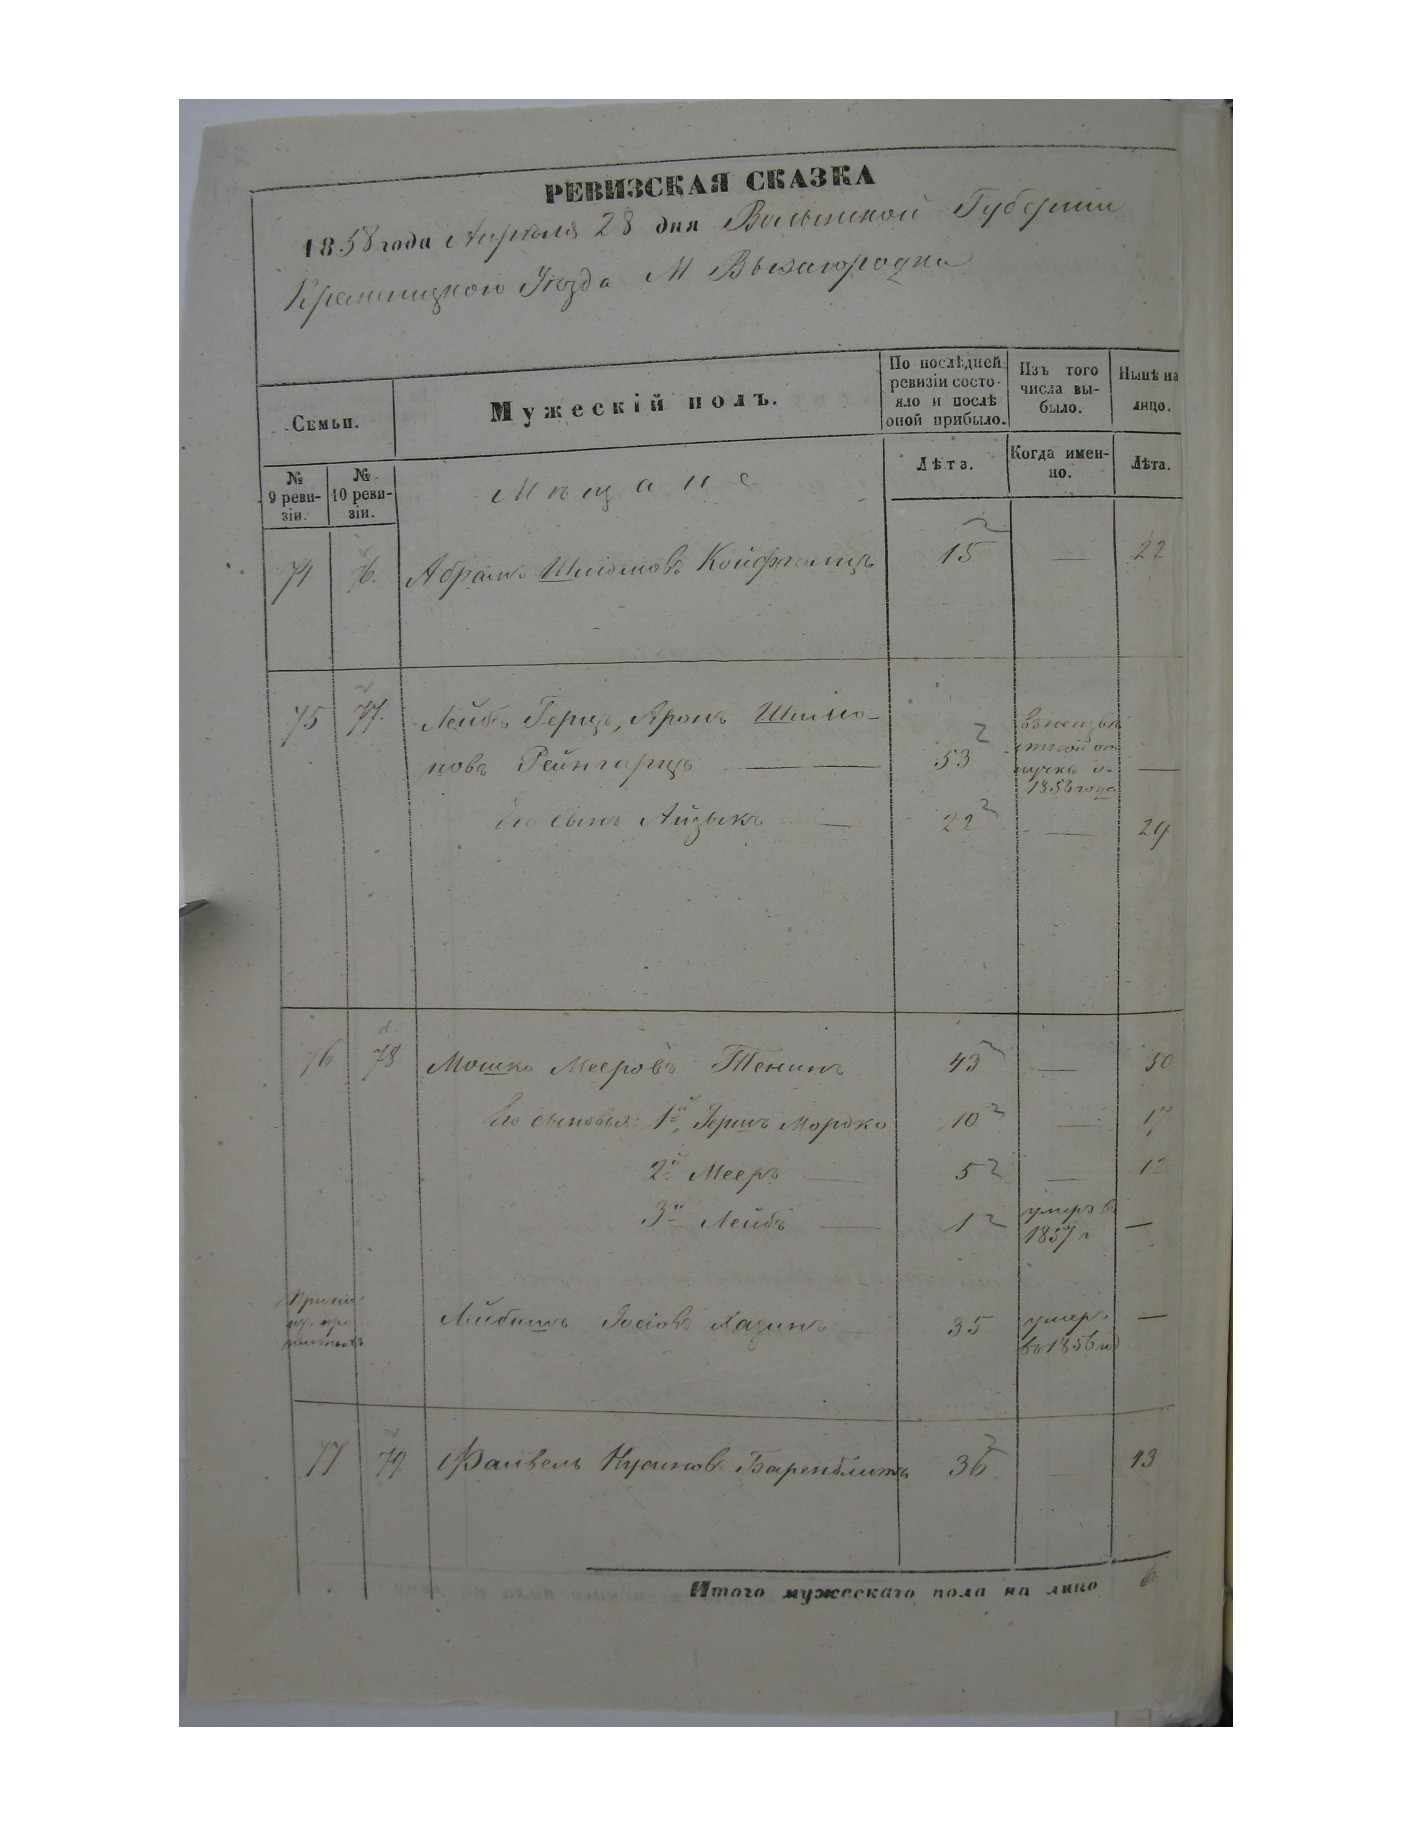 РЕВИЗСКАЯ СКАЗКА
1858 года Апреля 28 дня Волынской Губернии
Кременецкого Уезда М Вышгородка
Семьи.
Мужескій полъ.
По послѣдней ревизіи состо-
яло и послѣ оной прибыло.
Изъ того числа вы-
было.
Нынѣ на лицо.
№ 9 реви-
зіи.
№ 10 реви-
зіи.
Лѣта.
Когда имен-
но.
Лѣта.
Мѣщане
74 76. Абрамъ Шліомовъ 15 — 22
75 77. Лейбъ Герцъ, Аронъ Шлио-
новъ Рейнгерцъ — — 53
1858 года —
Его сынъ Айзыкъ — 22 — 29
76 78 Мошко Мееровъ Тененъ 43 — 50
Его сыновья: 1й, Гершъ Мордко 10 — 17
2й Мееръ — 5 — 12
3й Лейбъ — 1 умеръ въ
1857 г —
Лейбишъ Іосіовъ Хазинъ — 35 умеръ
въ 1856 год —
77 79. Файвель Нусиновъ Баренблитъ 36 — 43
Итого мужескаго пола на лицо 6